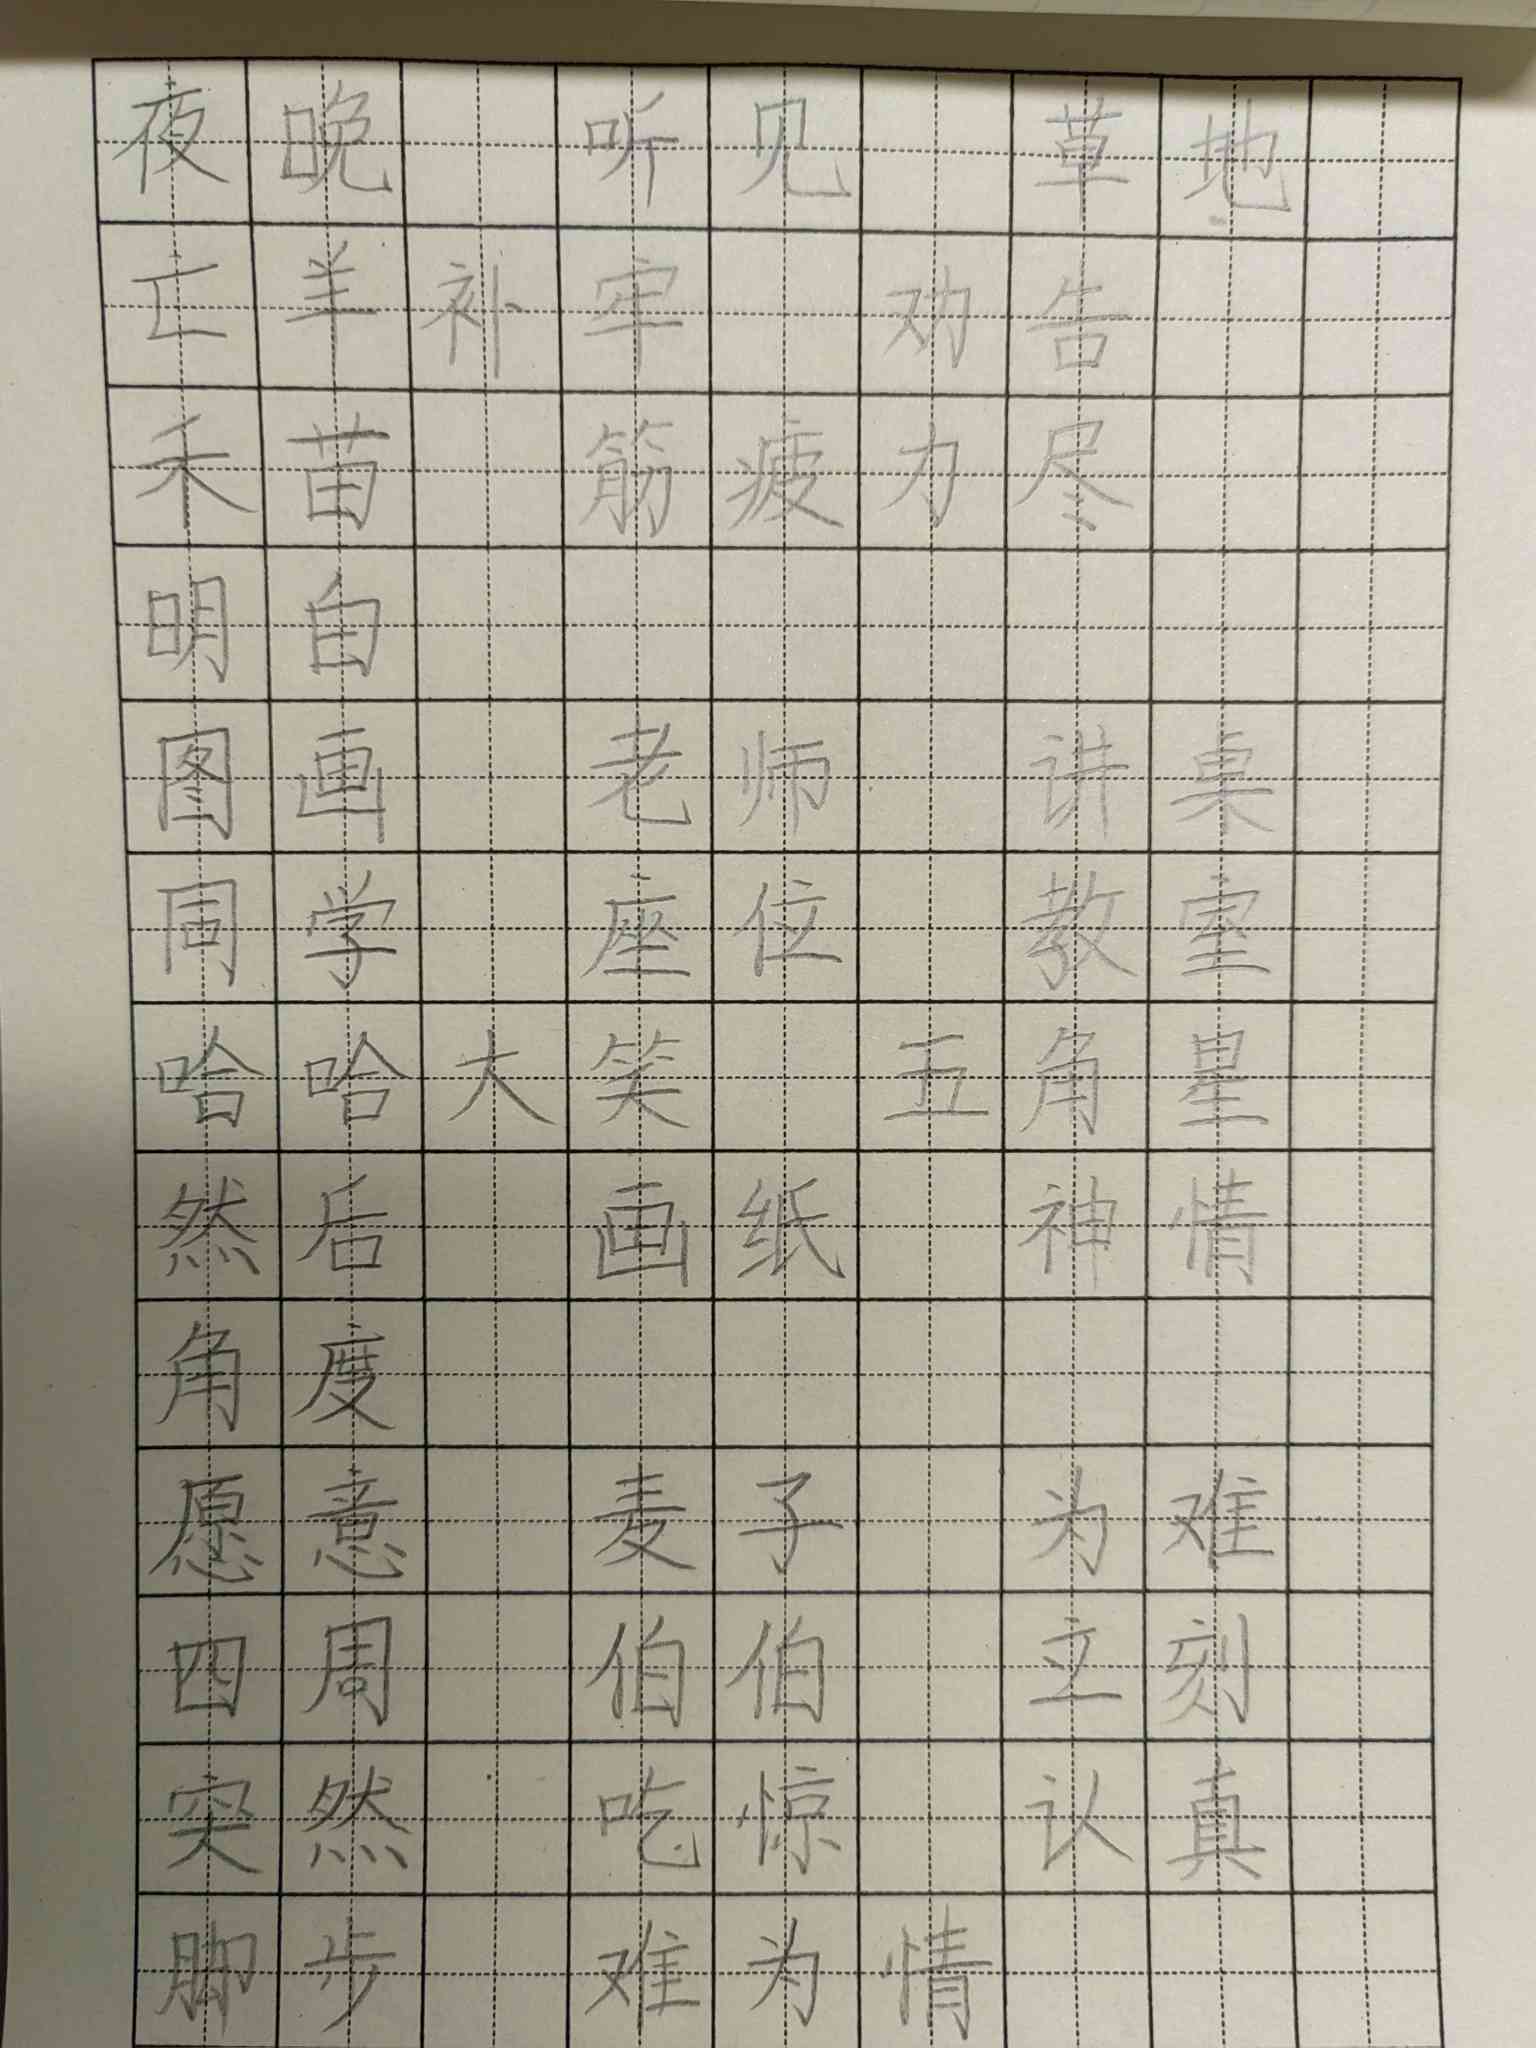 夜晚 听见 草地
亡羊补牢 劝告
禾苗 筋疲力尽
明白
图画 老师 讲桌
同学 座位 教室
哈哈大笑 五角星
然后 画纸 神情
角度
愿意 麦子 为难
四周 伯伯 立刻
突然 吃惊 认真
脚步 难为情